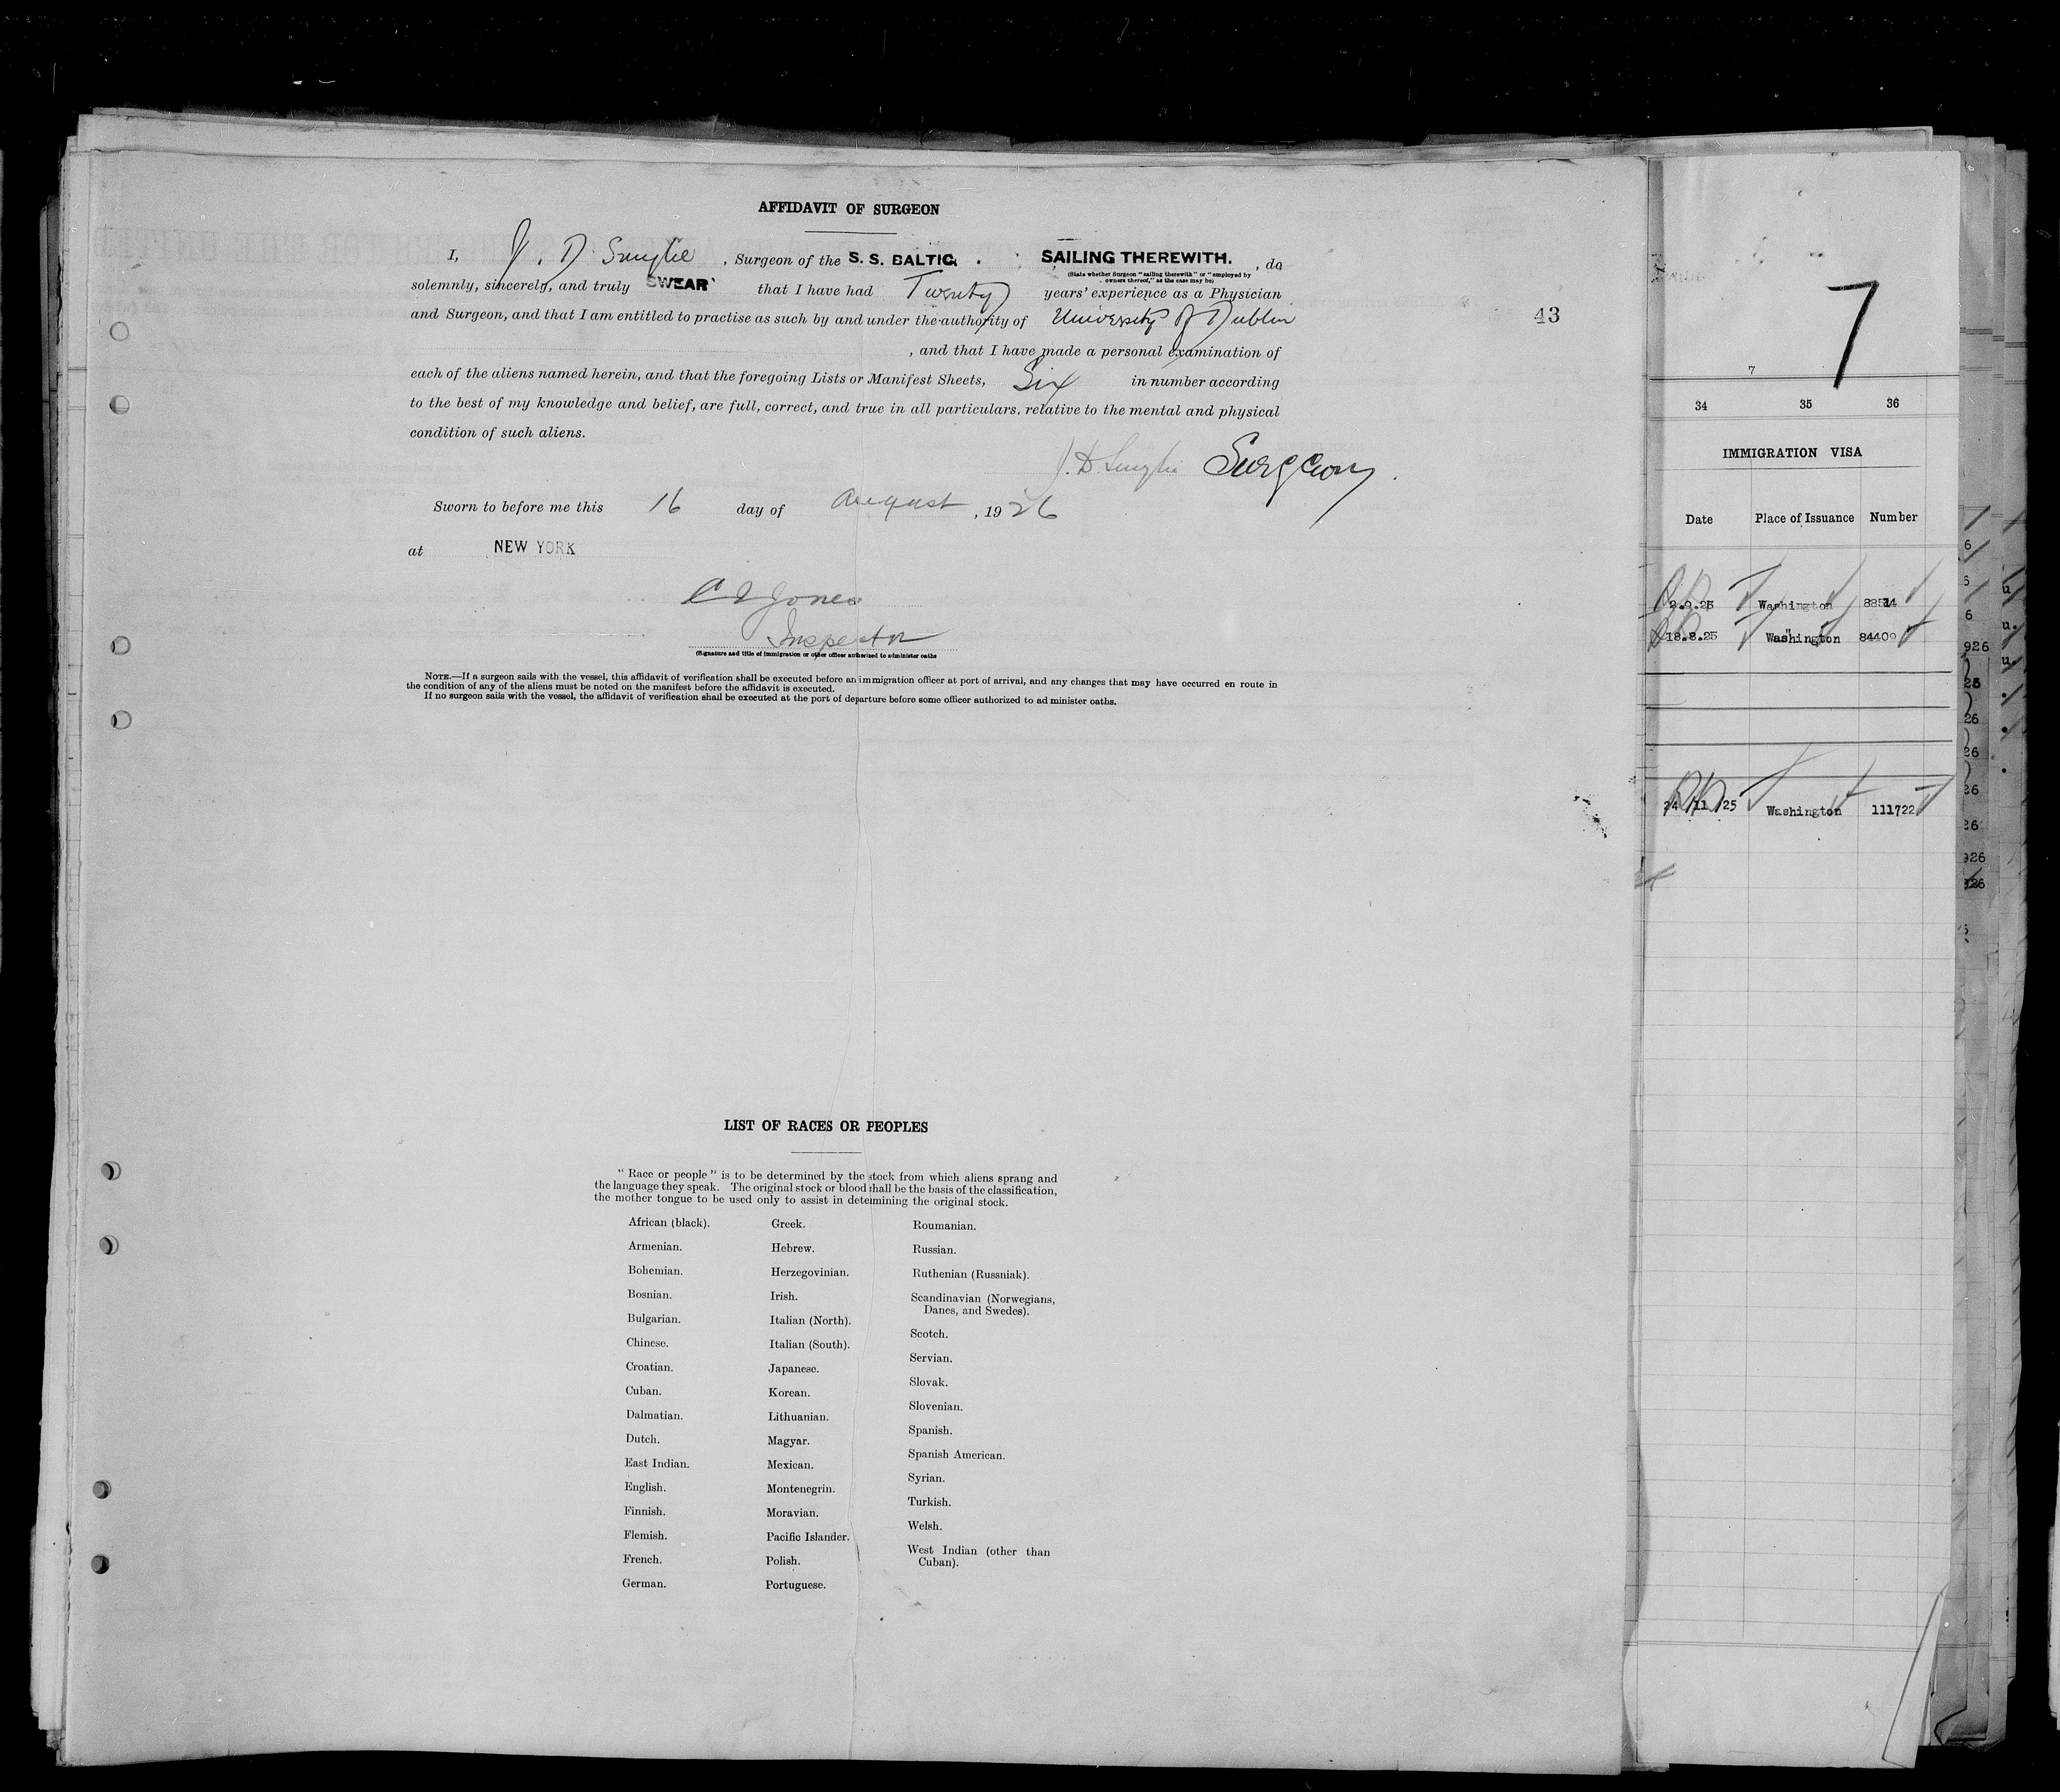 AFFIDAVIT OF SURGEON
I, J. D. Smylie, Surgeon of the S. S. BALTIC. SAILING THEREWITH., do
(State whether Surgeon "sailing therewith" or "employed by
owners thereof," as the case may be)
solemnly, sincerely, and truly SWEAR that I have had Twenty years' experience as a Physician
and Surgeon, and that I am entitled to practise as such by and under the authority of University of Dublin
, and that I have made a personal examination of
each of the aliens named herein, and that the foregoing Lists or Manifest Sheets, Six in number according
to the best of my knowledge and belief, are full, correct, and true in all particulars, relative to the mental and physical
condition of such aliens.
J. D. Smylie Surgeon.
Sworn to before me this 16 day of August, 1926
at NEW YORK
Jones
Inspector
(Signature and title of immigration or other officer authorized to administer oaths
NOTE.—If a surgeon sails with the vessel, this affidavit of verification shall be executed before an immigration officer at port of arrival, and any changes that may have occurred en route in
the condition of any of the aliens must be noted on the manifest before the affidavit is executed.
If no surgeon sails with the vessel, the affidavit of verification shall be executed at the port of departure before some officer authorized to ad minister oaths.
43
LIST OF RACES OR PEOPLES
" Race or people " is to be determined by the stock from which aliens sprang and
the language they speak. The original stock or blood shall be the basis of the classification,
the mother tongue to be used only to assist in determining the original stock.
African (black).
Armenian.
Bohemian.
Bosnian.
Bulgarian.
Chinese.
Croatian.
Cuban.
Dalmatian.
Dutch.
East Indian.
English.
Finnish.
Flemish.
French.
German.
Greek.
Hebrew.
Herzegovinian.
Irish.
Italian (North).
Italian (South).
Japanese.
Korean.
Lithuanian.
Magyar.
Mexican.
Montenegrin.
Moravian.
Pacific Islander.
Polish.
Portuguese.
Roumanian.
Russian.
Ruthenian (Russniak).
Scandinavian (Norwegians,
Danes, and Swedes).
Scotch.
Servian.
Slovak.
Slovenian.
Spanish.
Spanish American.
Syrian.
Turkish.
Welsh.
West Indian (other than
Cuban).
7
7
34 35 36
IMMIGRATION VISA
Date Place of Issuance Number
2.9.25 Washington
18.8.25 Washington 84400
24/11/25 Washington 111722
6
6
6
926
26
26
26
26
26
926
926